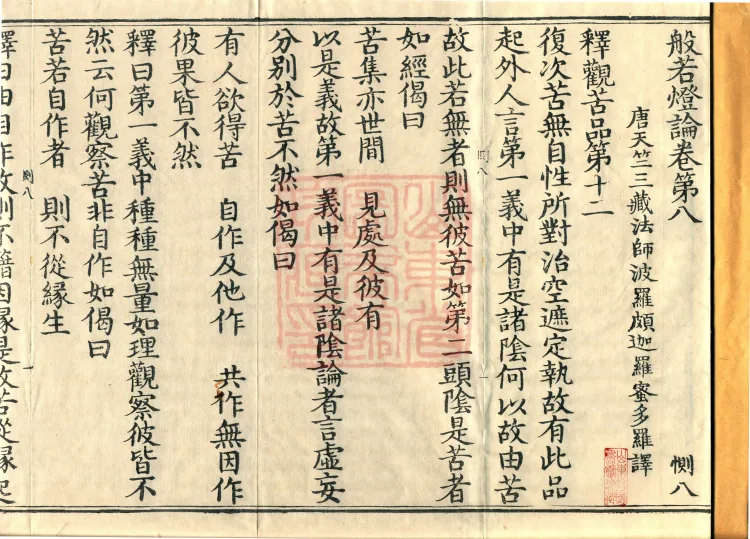 般若燈論卷第八　惻八
唐天竺三藏法師波羅頗迦羅蜜多羅譯
釋觀苦品第十二
復次苦無自性所對治空遮定執故有此品
起外人言第一義中有是諸陰何以故由苦
故此若無者則無彼苦如第二頭陰是苦者
如經偈曰
苦集亦世間　見處及彼有
以是義故第一義中有是諸陰論者言虛妄
分別於苦不然如偈曰
有人欲得苦　自作及他作　共作無因作
彼果皆不然
釋曰第一義中種種無量如理觀察彼皆不
然云何觀察苦非自作如偈曰
惻八　一
苦若自作者　則不從緣生
釋曰由自作故則不藉因緣是故苦從緣起